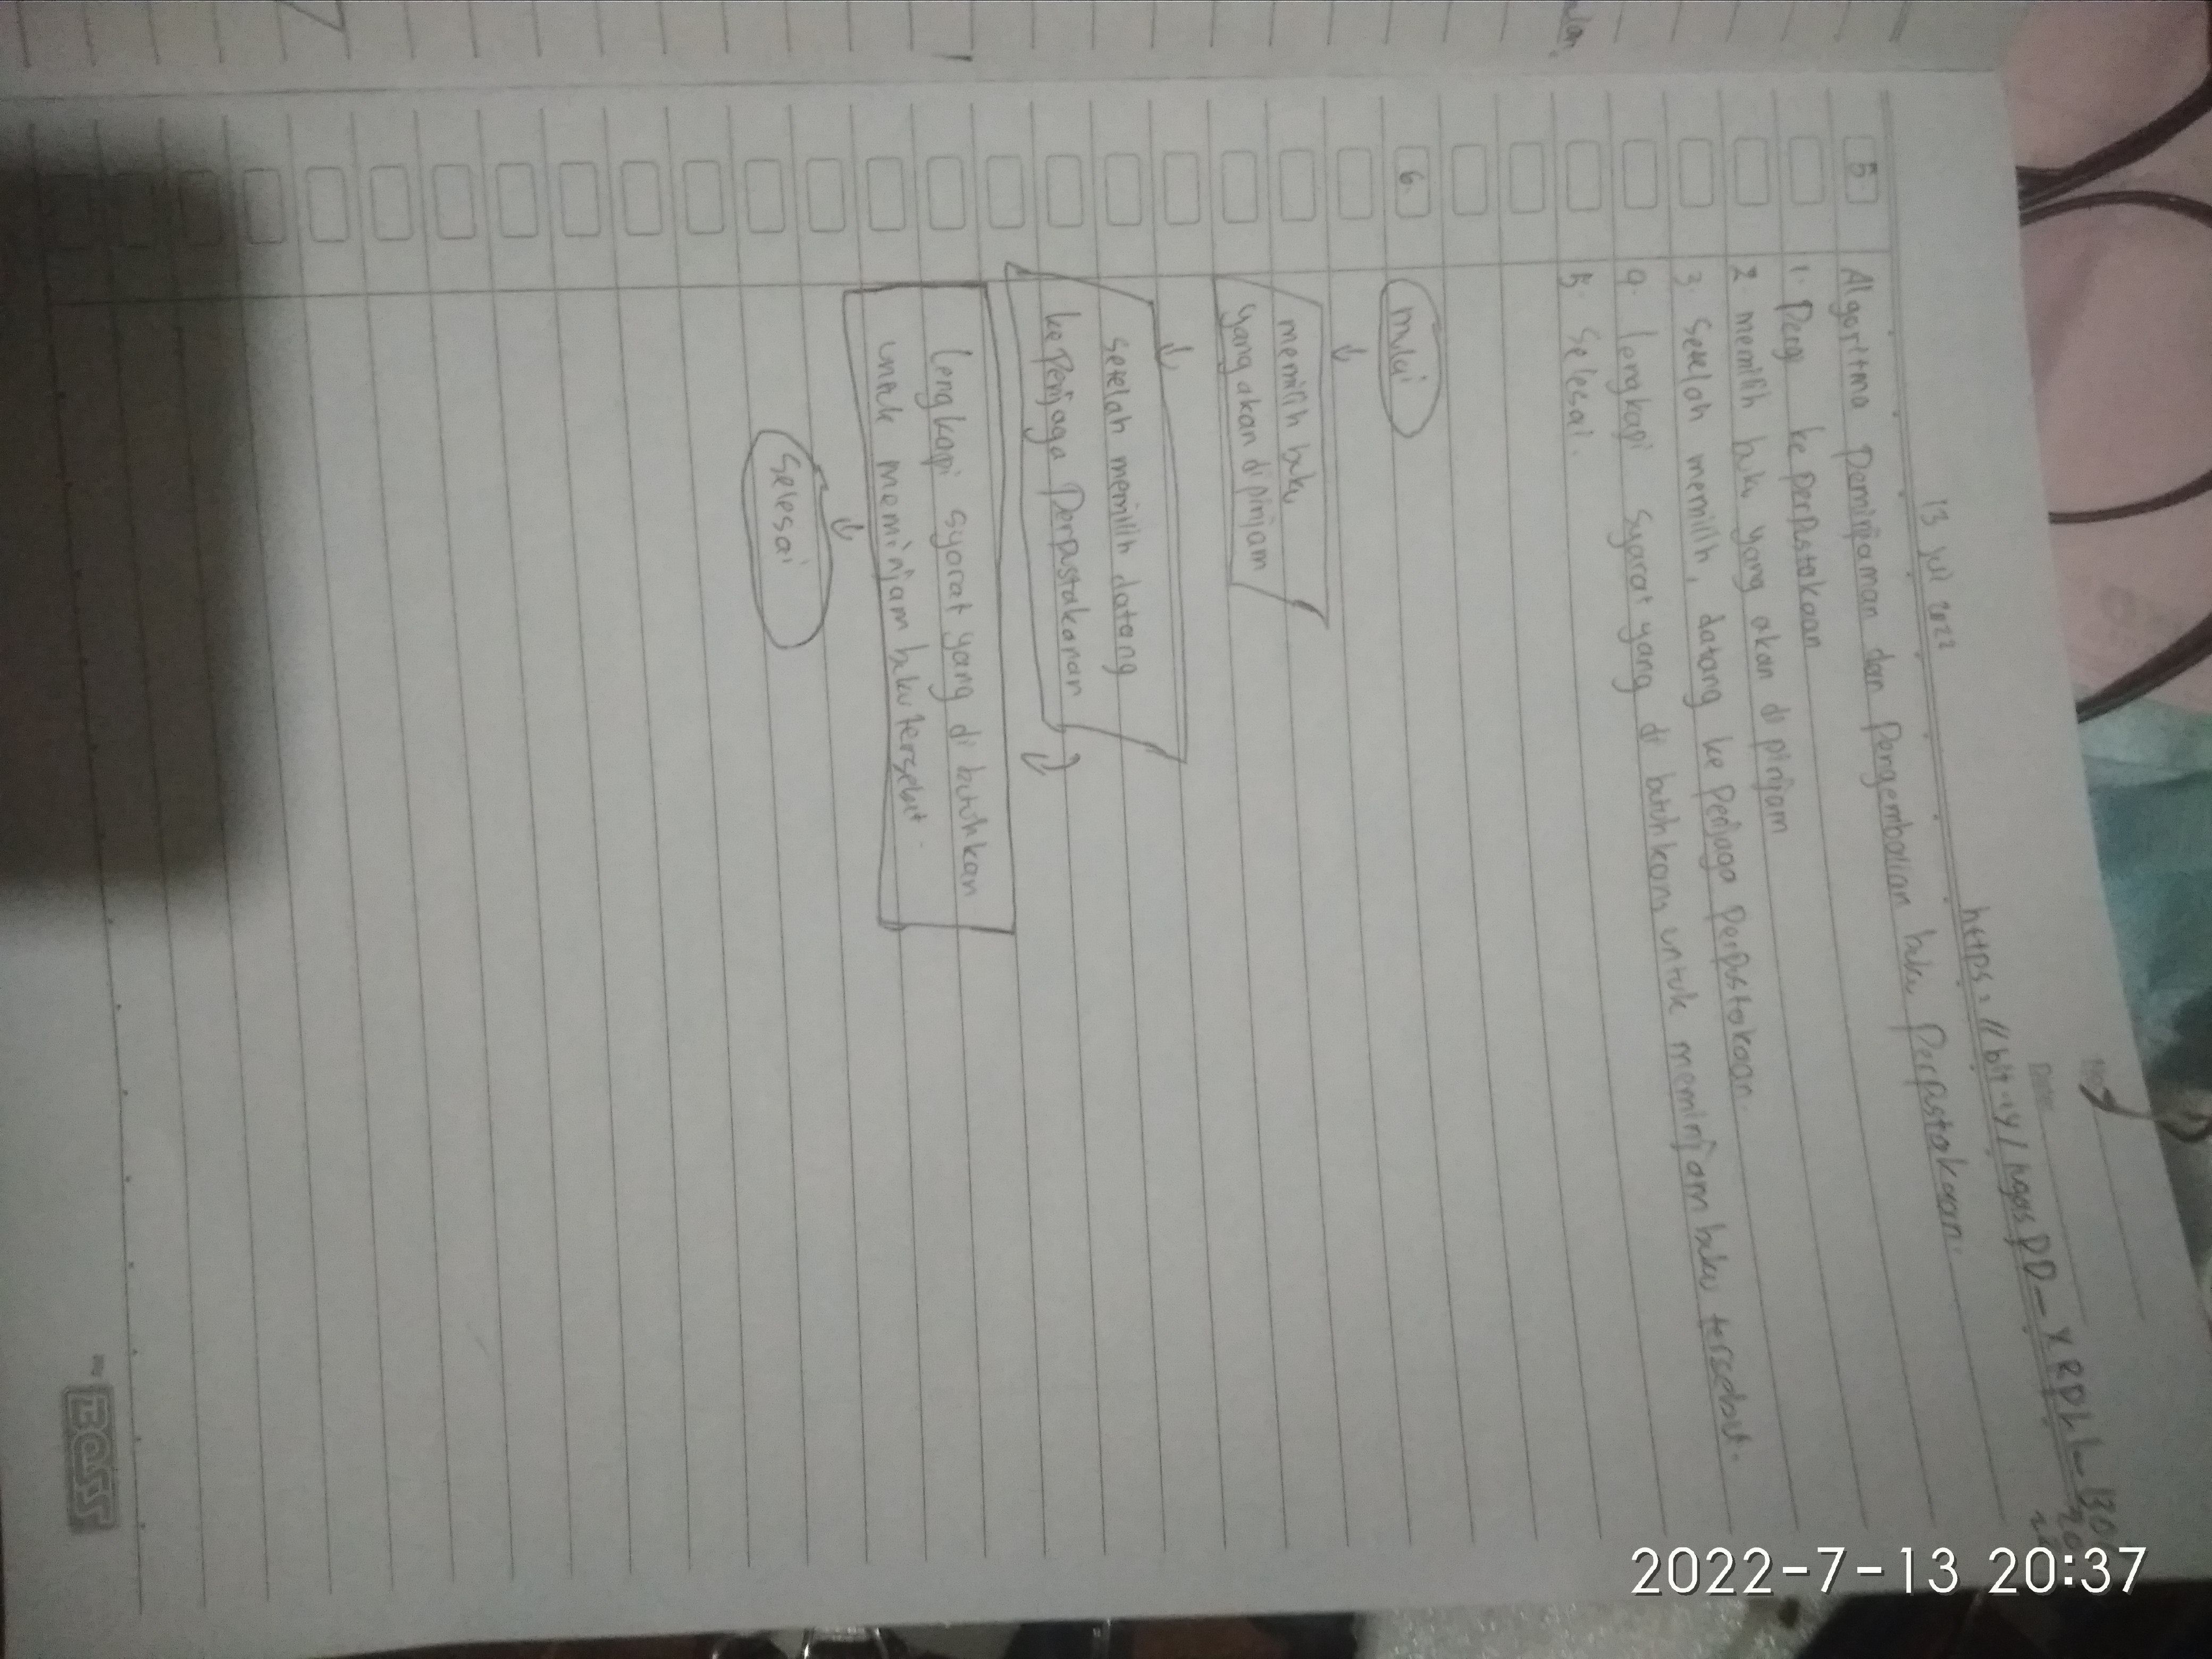 No
Date
13 Juli 2022
https://bit.ly/tugasPD-XRPL1-130
5. Algoritma Peminjaman dan Pengembalian buku Perpustakaan.
1. Pergi ke perpustakaan
2 memilih buku yang akan di pinjam
3 setelah memilih, datang ke Penjaga Perpustakaan.
4. lengkapi syarat yang di butuhkan, untuk meminjam buku tersebut.
5. Selesai.
6. mulai
memilih buku
yang akan di pinjam
setelah memilih datang
ke Penjaga Perpustakanan
lengkapi syarat yang di butuhkan
untuk meminjam buku tersebut.
Selesai
BOSS
2022-7-13 20:37